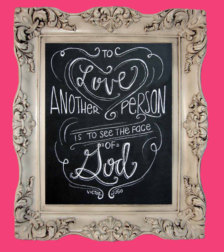 TO
Love
ANOTHER PERSON
IS TO SEE THE FACE
OF
God
VICTOR HUGO